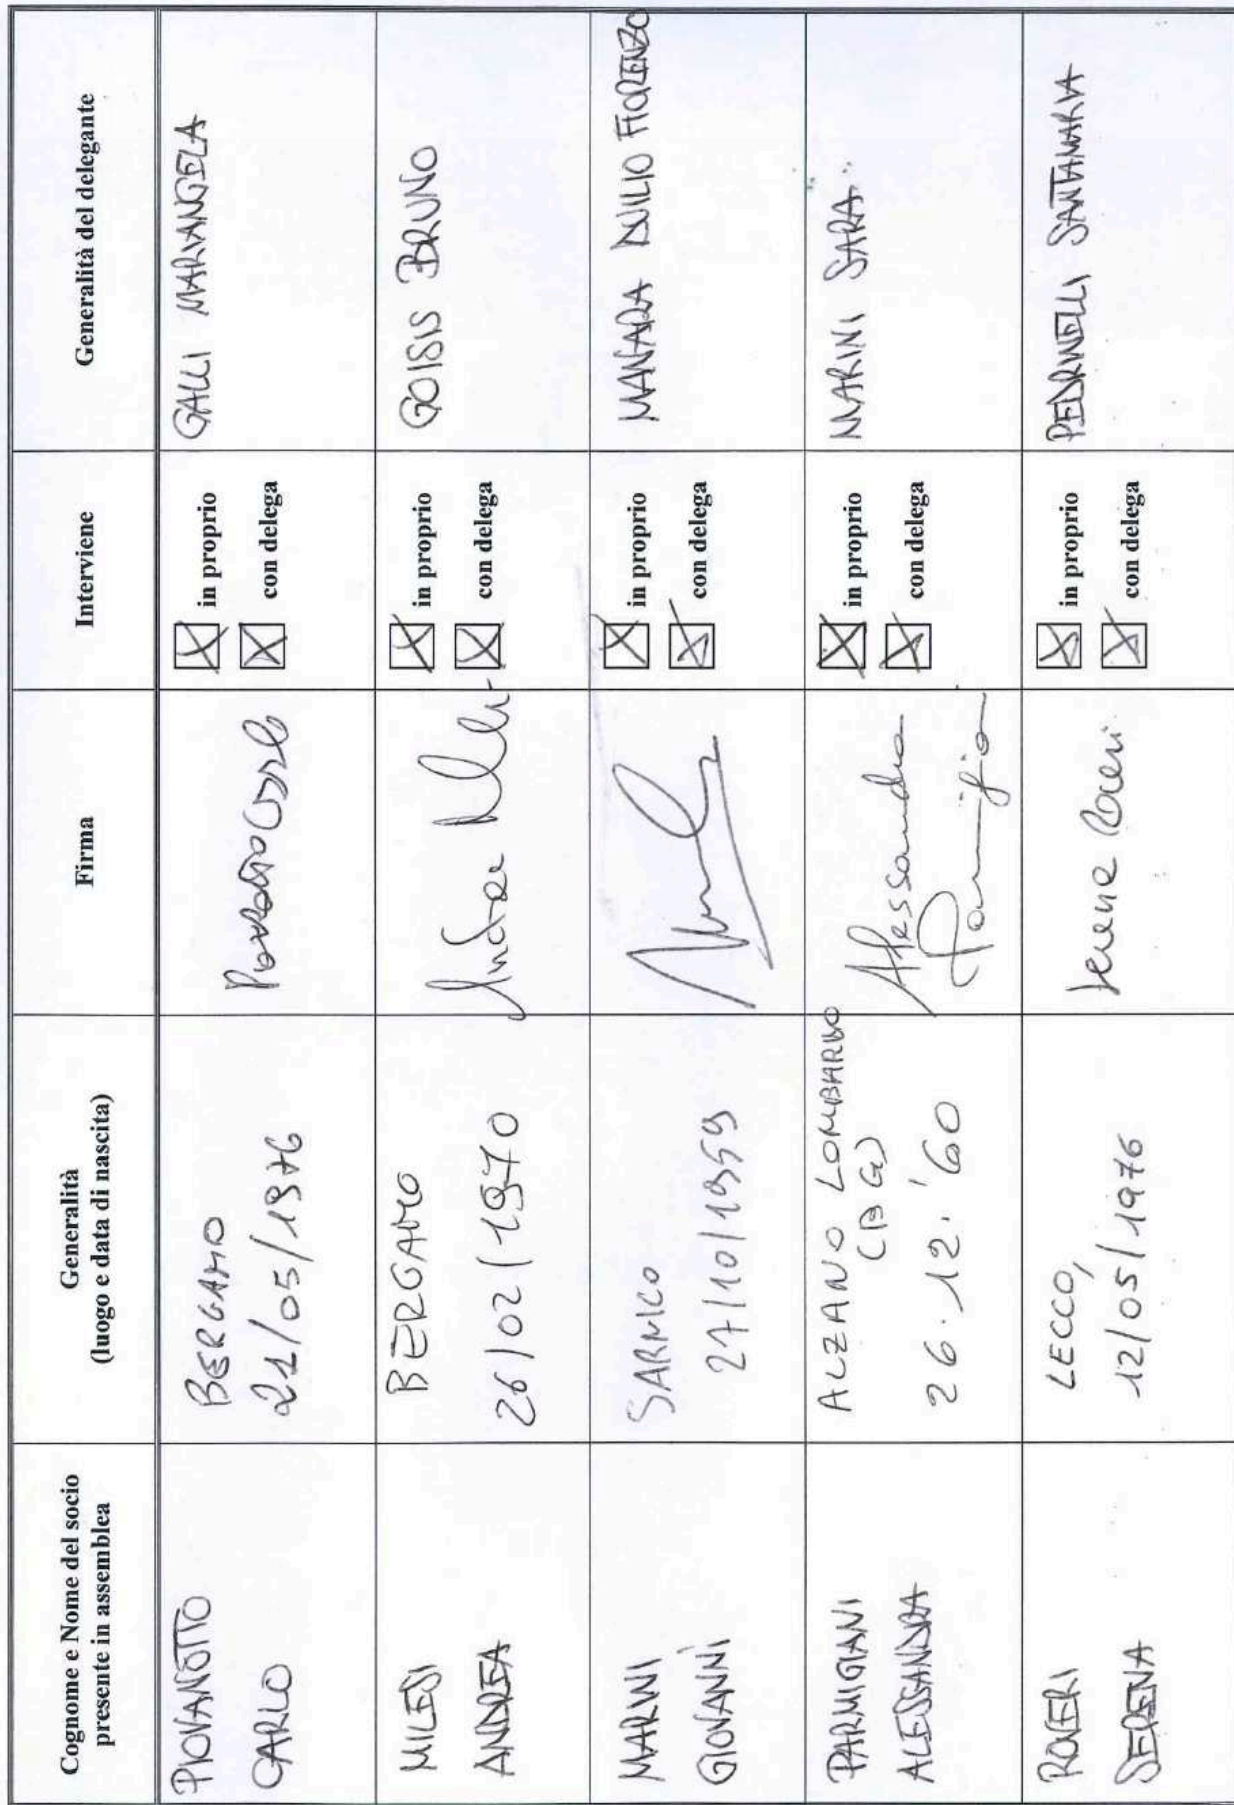 Cognome e Nome del socio
presente in assemblea
Generalità
(luogo e data di nascita)
Firma
Interviene
Generalità del delegante
PIOVANOTTO
CARLO
BERGAMO
21/05/1976
in proprio
con delega
GALLI MARIANGELA
MILESI
ANDREA
BERGAMO
26/02/1970
Andrea
in proprio
con delega
GOISIS BRUNO
MARINI
GIOVANNI
SARNICO
27/10/1959
in proprio
con delega
MANARA DUILIO FIORENZO
PARMIGIANI
ALESSANDRA
ALZANO LOMBARDO
(BG)
26.12.'60
Alessandra
in proprio
con delega
MARINI SARA
ROVERI
SERENA
LECCO,
12/05/1976
Serena Roveri
in proprio
con delega
PEDRINELLI SANTAMARIA